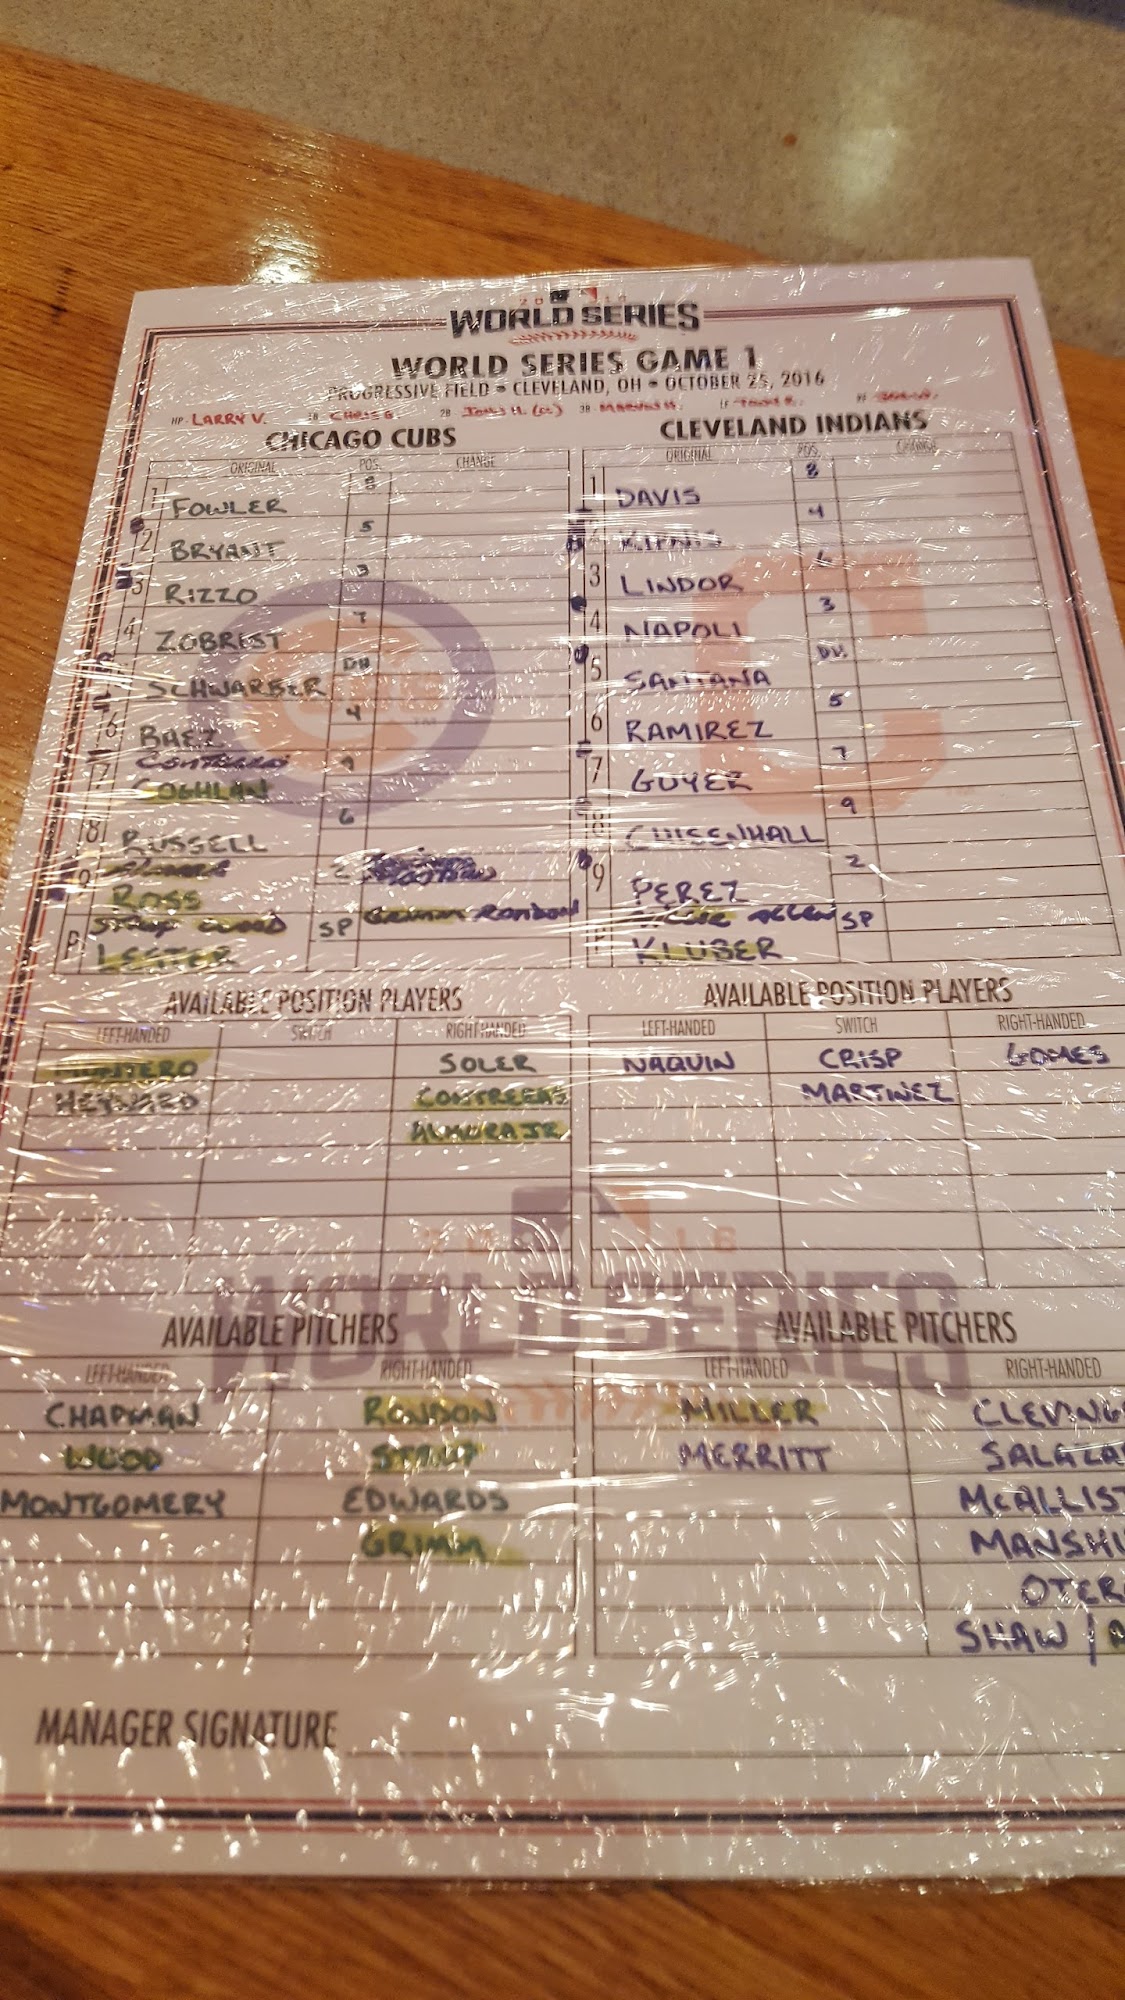 2016
WORLD SERIES
WORLD SERIES GAME 1
PROGRESSIVE FIELD • CLEVELAND, OH • OCTOBER 25, 2016
HP- LARRY V. 1B CHRIS G. 2B JOHN H. (CC) 3B- MARVIN H. LF TONY R.
CHICAGO CUBS
ORIGINAL POS. CHANGE
1 FOWLER 8
2 BRYANT 5
3 RIZZO 3
4 ZOBRIST 7
SCHWARBER DH
6 BAEZ 4
CONTRERAS
7 COGHLAN 9
8 RUSSELL 6
9 ROSS 2
STROP WOOD GRIMM RONDON
P LESTER SP
AVAILABLE POSITION PLAYERS
LEFT-HANDED SWITCH RIGHT-HANDED
MONTERO SOLER
HEYWARD CONTRERAS
ALMORA JR
AVAILABLE PITCHERS
LEFT-HANDED RIGHT-HANDED
CHAPMAN RONDON
WOOD STROP
MONTGOMERY EDWARDS
GRIMM
CLEVELAND INDIANS
ORIGINAL POS. CHANGE
1 DAVIS 8
KIPNIS 4
3 LINDOR 6
4 NAPOLI 3
5 SANTANA DH
6 RAMIREZ 5
7 GUYER 7
8 CHISENHALL 9
9 PEREZ 2
MILLER ALLEN
P KLUBER SP
AVAILABLE POSITION PLAYERS
LEFT-HANDED SWITCH RIGHT-HANDED
NAQUIN CRISP GOMES
MARTINEZ
AVAILABLE PITCHERS
LEFT-HANDED RIGHT-HANDED
MILLER CLEVING
MERRITT SALAZA
McALLIST
MANSHI
OTER
SHAW /
WORLD SERIES
MANAGER SIGNATURE